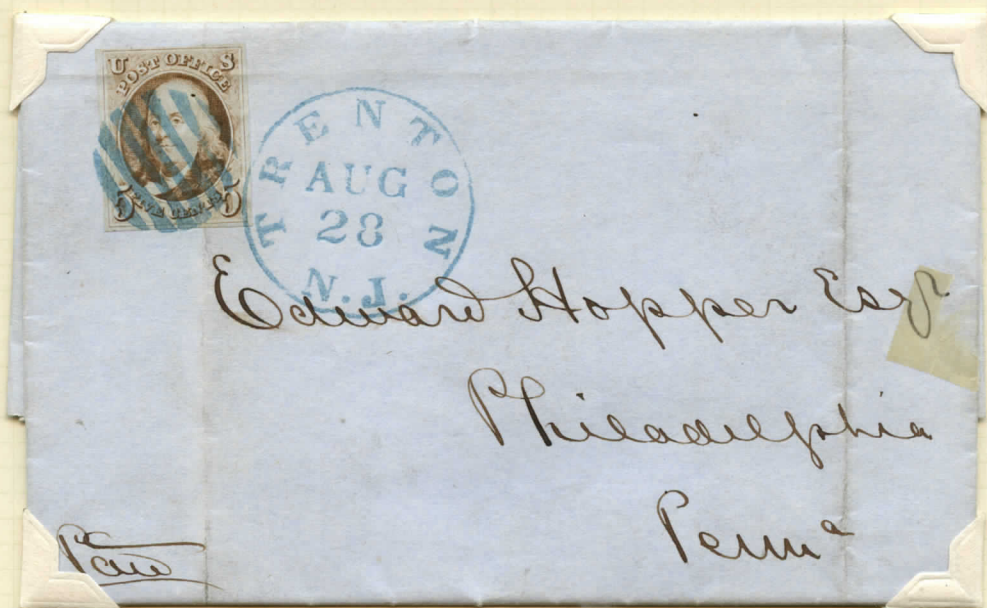 U S
POST OFFICE
5 FIVE CENTS 5
TRENTON
AUG
28
N.J.
Edward Hopper Esqr
Philadelphia
Penna
Paid